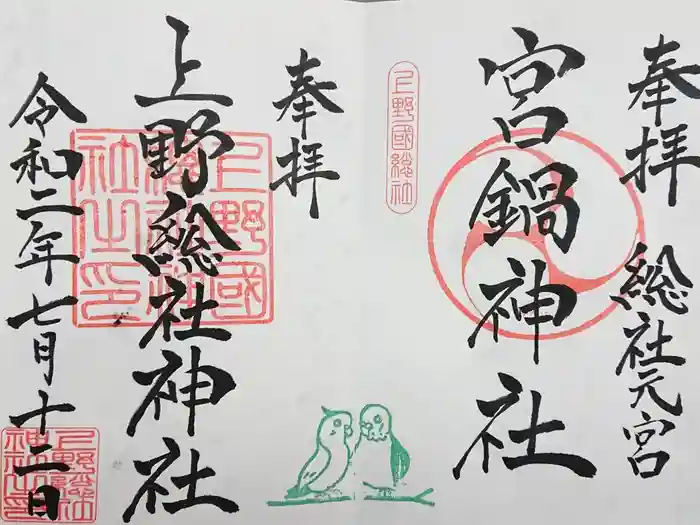 奉拝 総社元宮
宮鍋神社
上野國総社
奉拝
上野総社神社
令和二年七月十二日
上野國
総社神
社之印
上野総社
神社之印